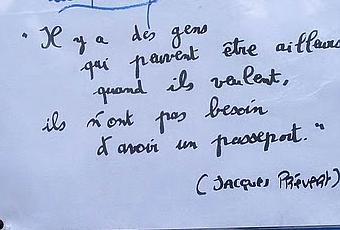 "Il y a des gens
qui peuvent être ailleurs
quand ils veulent,
ils n'ont pas besoin
d'avoir un passeport."
(JACQUES PRÉVERT)